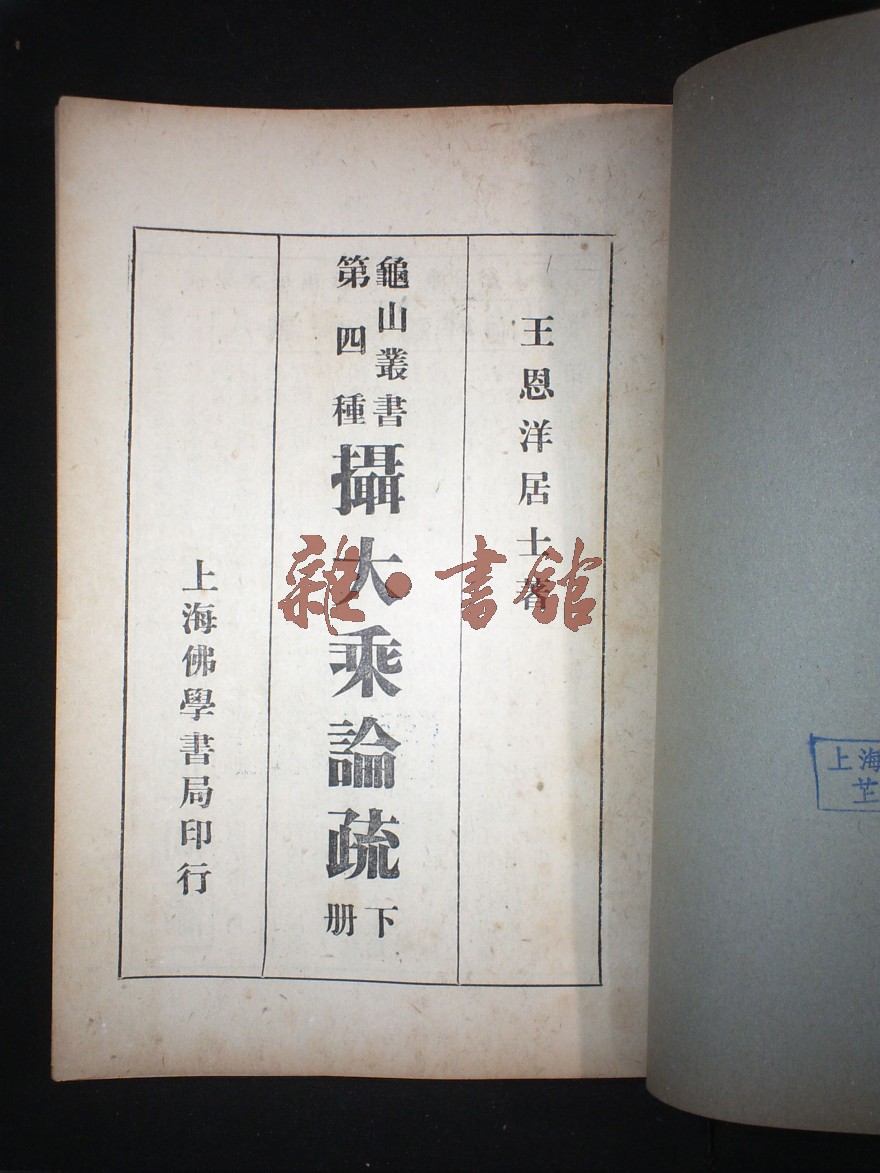 王恩洋居士著
龜山叢書
第四種
攝大乘論疏
下册
上海佛學書局印行
雜·書館
上海
芷